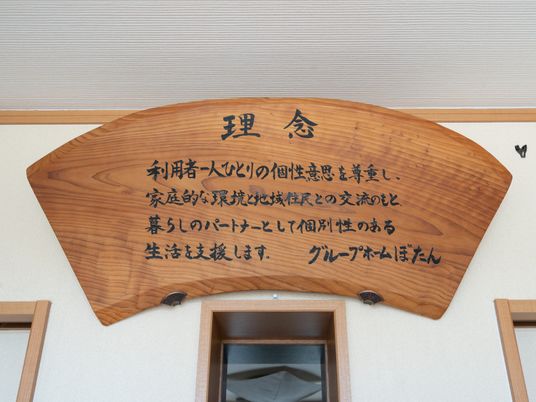 理念
利用者一人ひとりの個性意思を尊重し、
家庭的な環境と地域住民との交流のもと
暮らしのパートナーとして個別性のある
生活を支援します. グループホームぼたん